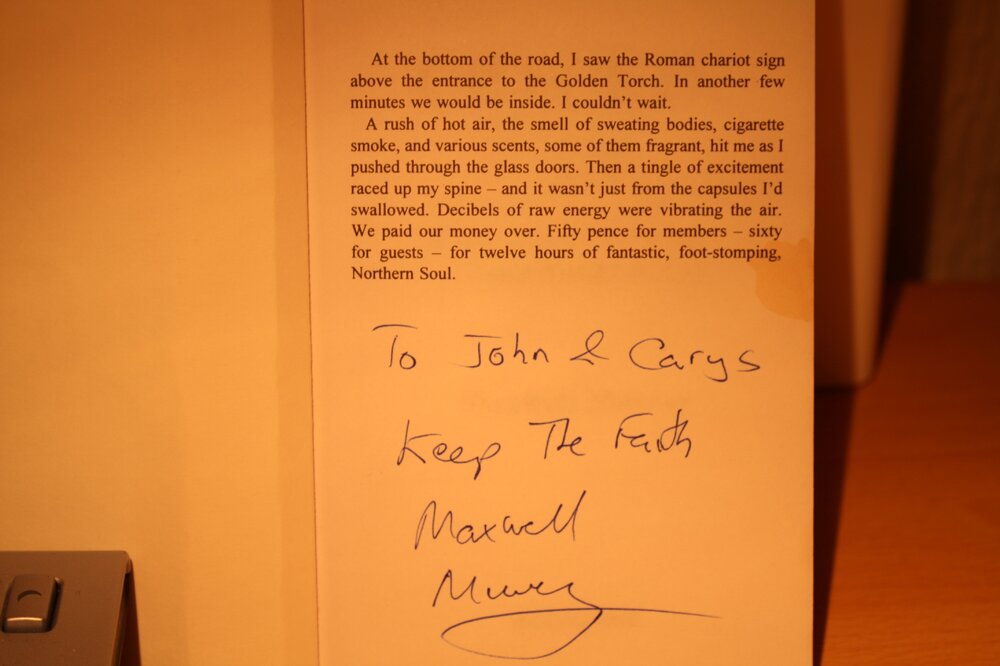 At the bottom of the road, I saw the Roman chariot sign
above the entrance to the Golden Torch. In another few
minutes we would be inside. I couldn't wait.
A rush of hot air, the smell of sweating bodies, cigarette
smoke, and various scents, some of them fragrant, hit me as I
pushed through the glass doors. Then a tingle of excitement
raced up my spine – and it wasn't just from the capsules I'd
swallowed. Decibels of raw energy were vibrating the air.
We paid our money over. Fifty pence for members – sixty
for guests – for twelve hours of fantastic, foot-stomping,
Northern Soul.
To John & Carys
Keep The Faith
Maxwell